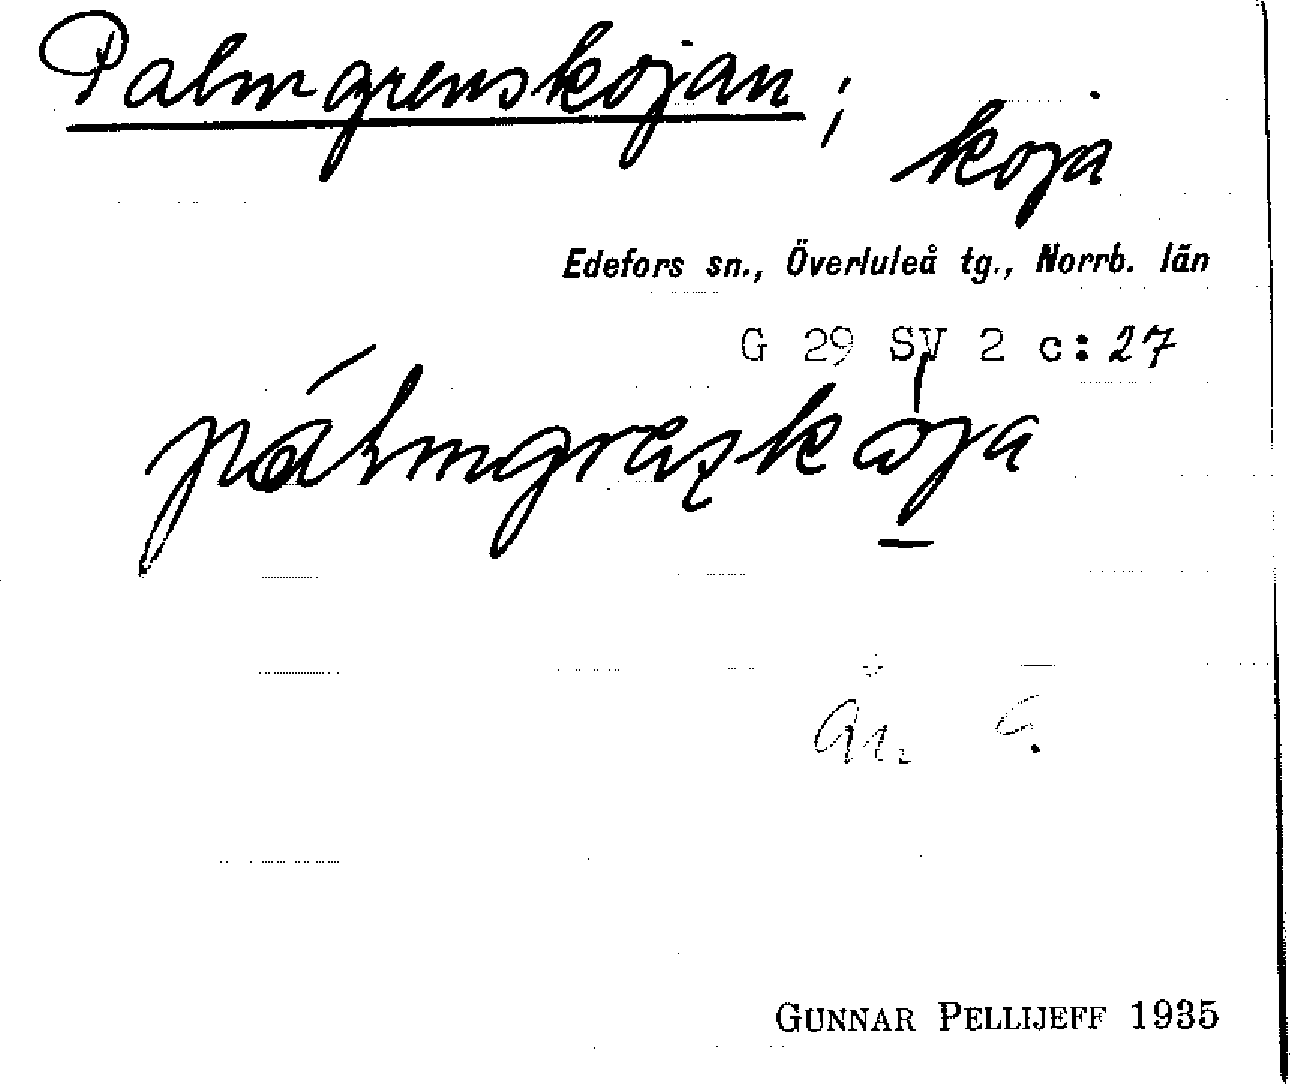 Palmgrenskojan;
koja
Edefors sn., Överluleå tg., Norrb. län
G 29 SV 2 c:27
GUNNAR PELLIJEFF 1935